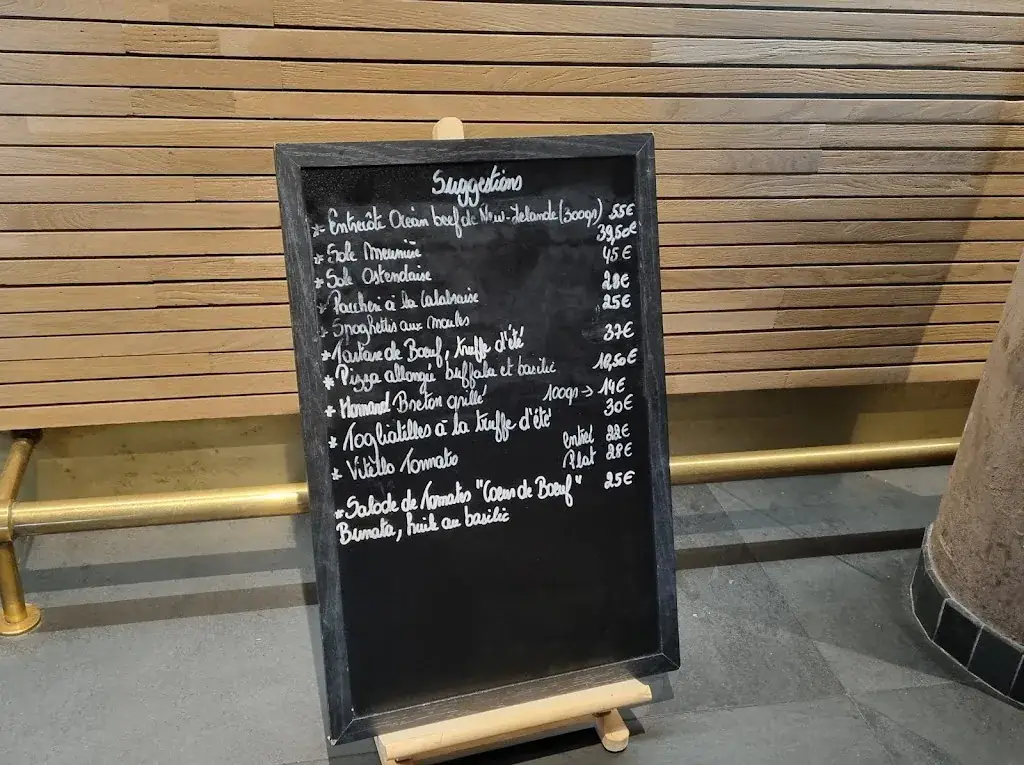 Suggestions
* Entrecôte Océan beef de New-Zelande (300grs) 55€
* Sole Meunière 39,50€
* Sole Ostendaise 45€
* Paccheri à la Calabraise 28€
* Spaghettis aux moules 25€
* Tartare de Boeuf, truffe d'été 37€
* Pizza allongée buffala et basilic 18,50€
* Homard Breton grillé 100grs → 14€
* Tagliatilles à la truffe d'été 30€
* Vitello Tomato Entrée 22€
Plat 28€
* Salade de Tomates "Coeur de Boeuf" 25€
Burrata, huile au basilic